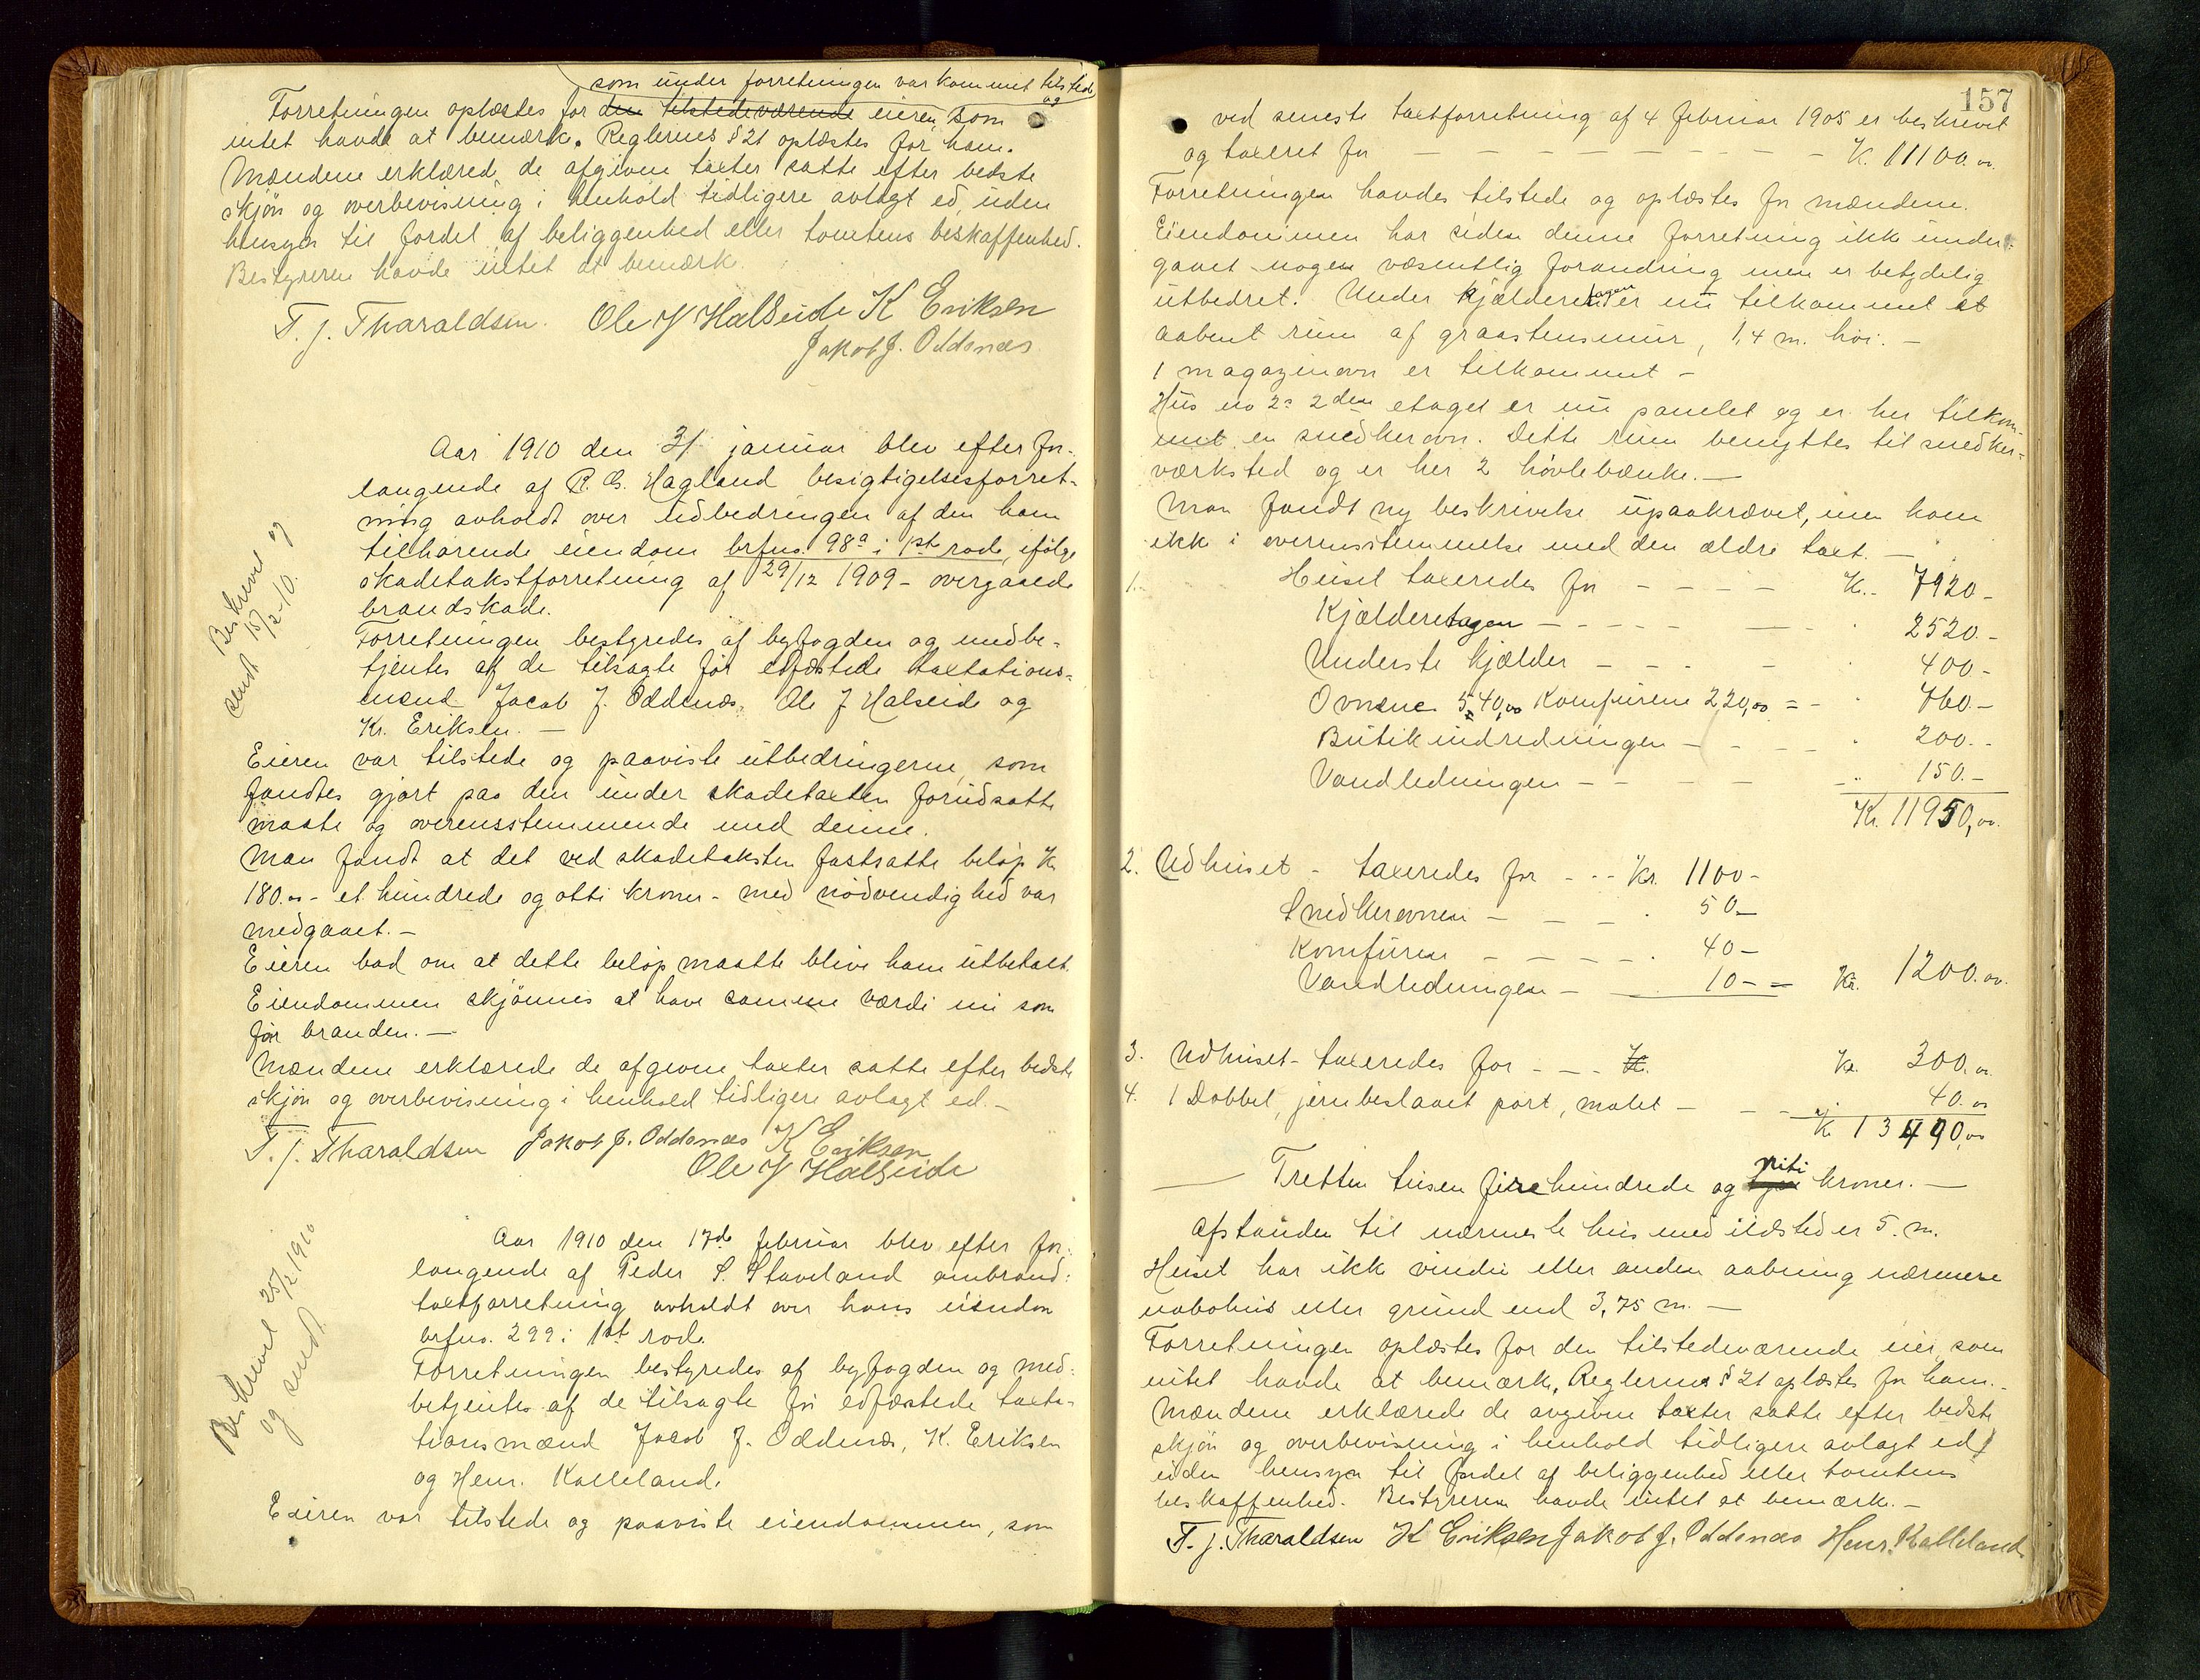 som under forretningen var kommet tilstede
og
Forretningen oplæstes for den tilstedeværende eieren, som
intet havde at bemærke. Reglernes § 21 oplæstes for ham.
Mændene erklærede de afgivne taxter satte efter bedste
skjön og overbevisning i henhold tidligere avlagt ed, uden
hensyn til fordel af beliggenhed eller tomtens beskaffenhed.
Bestyreren havde intet at bemærke.
T. J. Tharaldsen. Ole J Halseide K Eriksen
Jakob J. Oddenæs
Aar 1910 den 31 januar blev efter for-
langende af R. G. Hagland besigtigelsesforret-
ning avholdt over udbedringen af den ham
tilhørende eiendom brfno. 98a i 1ste rode, ifølge
skadetakstforretning af 29/12 1909 - overgaaede
brandskade.
Beskrevet og
sendt 15/2-10.
Forretningen bestyredes af byfogden og medbe-
tjentes af de tilsagte før edfæstede taxtations-
mænd Jacob J. Oddenæs, Ole J Halseide og
Kr. Eriksen. —
Eieren var tilstede og paaviste utbedringerne, som
fandtes gjort paa den under skadetaxten forudsatte
maate og overensstemmende med denne.
Man fandt at det ved skadetaksten fastsatte beløp Kr
180.00 - et hundrede og otti kroner - med nødvendighed var
medgaaet. -
Eieren bad om at dette beløp maatte blive ham utbetalt.
Eiendommen skjønnes at have samme værdi nu som
før branden. —
Mændene erklærede de afgivne taxter satte efter bedste
skjön og overbevisning i henhold tidligere avlagt ed. -
T. J. Tharaldsen Jakob J. Oddenæs K Eriksen
Ole J Halseide
Beskrevet 25/2 1910
og sendt
Aar 1910 den 17de februar blev efter for-
langende af Peder S. Staveland ombrand-
taxtforretning avholdt over hans eiendom
brfno. 299 i 1st rode.
Forretningen bestyredes af byfogden og med-
betjentes af de tilsagte før edfæstede taxta-
tionsmænd Jacob J. Oddenæs, K. Eriksen
og Henr. Kalleland.
Eieren var tilstede og paaviste eiendommen, som
157
ved seneste taxtforretning af 4 februar 1905 er beskrevet
og taxeret for — — — — — Kr. 11100.00.
Forretningen havdes tilstede og oplæstes for mændene.
Eiendommen har siden denne forretning ikke under-
gaaet nogen væsentlig forandring men er betydelig
utbedret. Under kjælderetagen er nu tilkommet et
aabent rum af graastensmur, 1,4 m. høi. —
1 magazinovn er tilkommet —
Hus no 2: 2den etage er nu panelet og er her tilkom-
met en snedkerovn. Dette rum benyttes til snedker-
værksted og er her 2 høvlebænke. —
Man fandt ny beskrivelse upaakrævet, men kom
ikke i overensstemmelse med den ældre taxt. —
1. Huset taxeredes for - - - - Kr. 7920 -
Kjælderetagen - - - - 2520. -
Underste kjælder - - - 400 -
Ovnene 540,00 Komfurene 220,00 = - 760. -
Butikindredningen - - - - 200. -
Vandledningen - - - - 150. -
Kr. 11950,00.
2. Udhuset - taxeredes for - - - Kr. 1100 -
Snedkerovnen - - - 50 -
Komfuren - - - - 40 -
Vandledningen - 10 - = Kr. 1200.00.
3. Udhuset - taxeredes for - - - K. Kr. 300.00
4. 1 Dobbel, jernbeslaaet port, malet - - - 40.00
Kr 13490,00
niti
— Tretten tusen firehundrede og kroner. —
Afstanden til nærmeste hus med ildsted er 5. m.
Huset har ikke vindu eller anden aabning nærmere
nabohus eller grund end 3,75 m. —
Forretningen oplæstes for den tilstedeværende eier, som
intet havde at bemærke, Reglernes § 21 oplæstes for ham. -
Mændene erklærede de avgivne taxter satte efter bedste
skjön og overbevisning i henhold tidligere avlagt ed,
uden hensyn til fordel af beliggenhed eller tomtens
beskaffenhed. Bestyreren havde intet at bemærke. -
T. J. Tharaldsen K Eriksen Jakob J. Oddenæs Henr. Kalleland